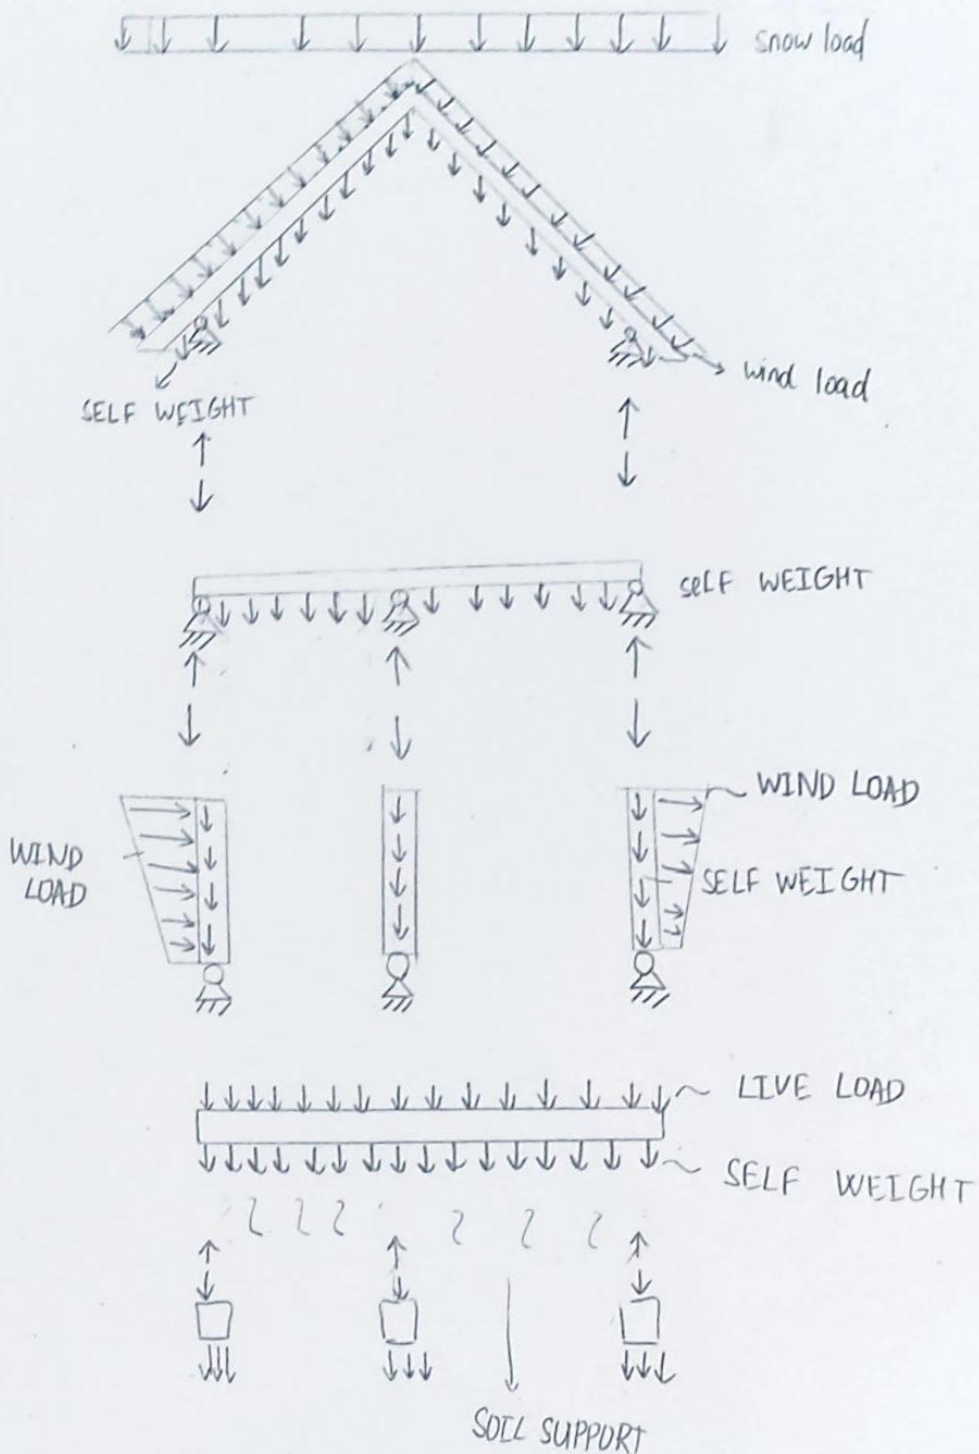 snow load
wind load
SELF WEIGHT
seLF WEIGHT
WIND LOAD
WIND
LOAD
SELF WEIGHT
LIVE LOAD
SELF WEIGHT
SOIL SUPPORT